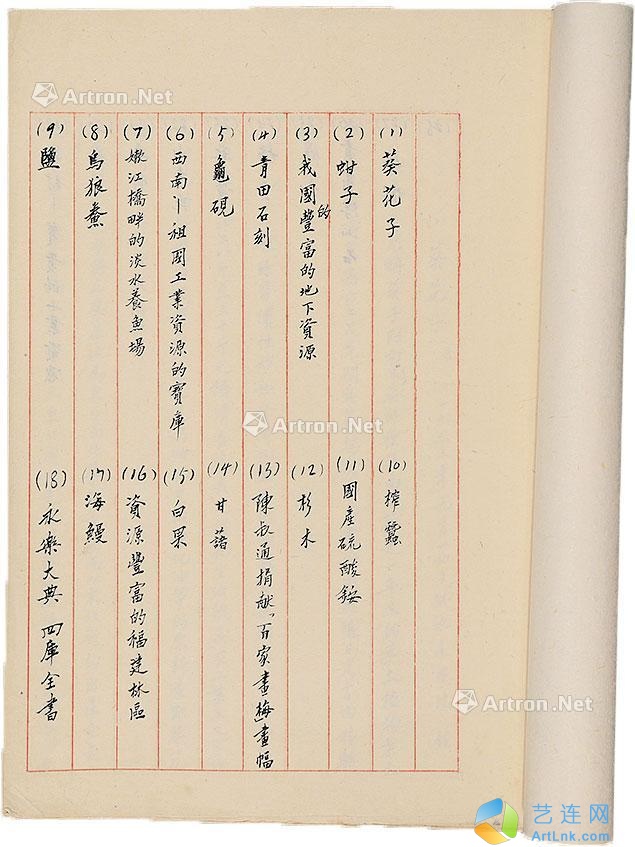 (1) 葵花子
(2) 蚶子
(3) 我國的豐富的地下資源
(4) 青田石刻
(5) 龜硯
(6) 西南——祖國工業資源的寶庫
(7) 嫩江橋畔的淡水養魚場
(8) 烏狼鯗
(9) 鹽
(10) 榨蠶
(11) 國產硫酸銨
(12) 杉木
(13) 陳叔通捐献「百家畫梅」畫幅
(14) 甘藷
(15) 白果
(16) 資源豐富的福建林區
(17) 海鰻
(18) 永樂大典 四庫全書
Artron.Net
Artron.Net
Artron.Net
Artron.Net
Artron.Net
艺连网
ArtLnk.com